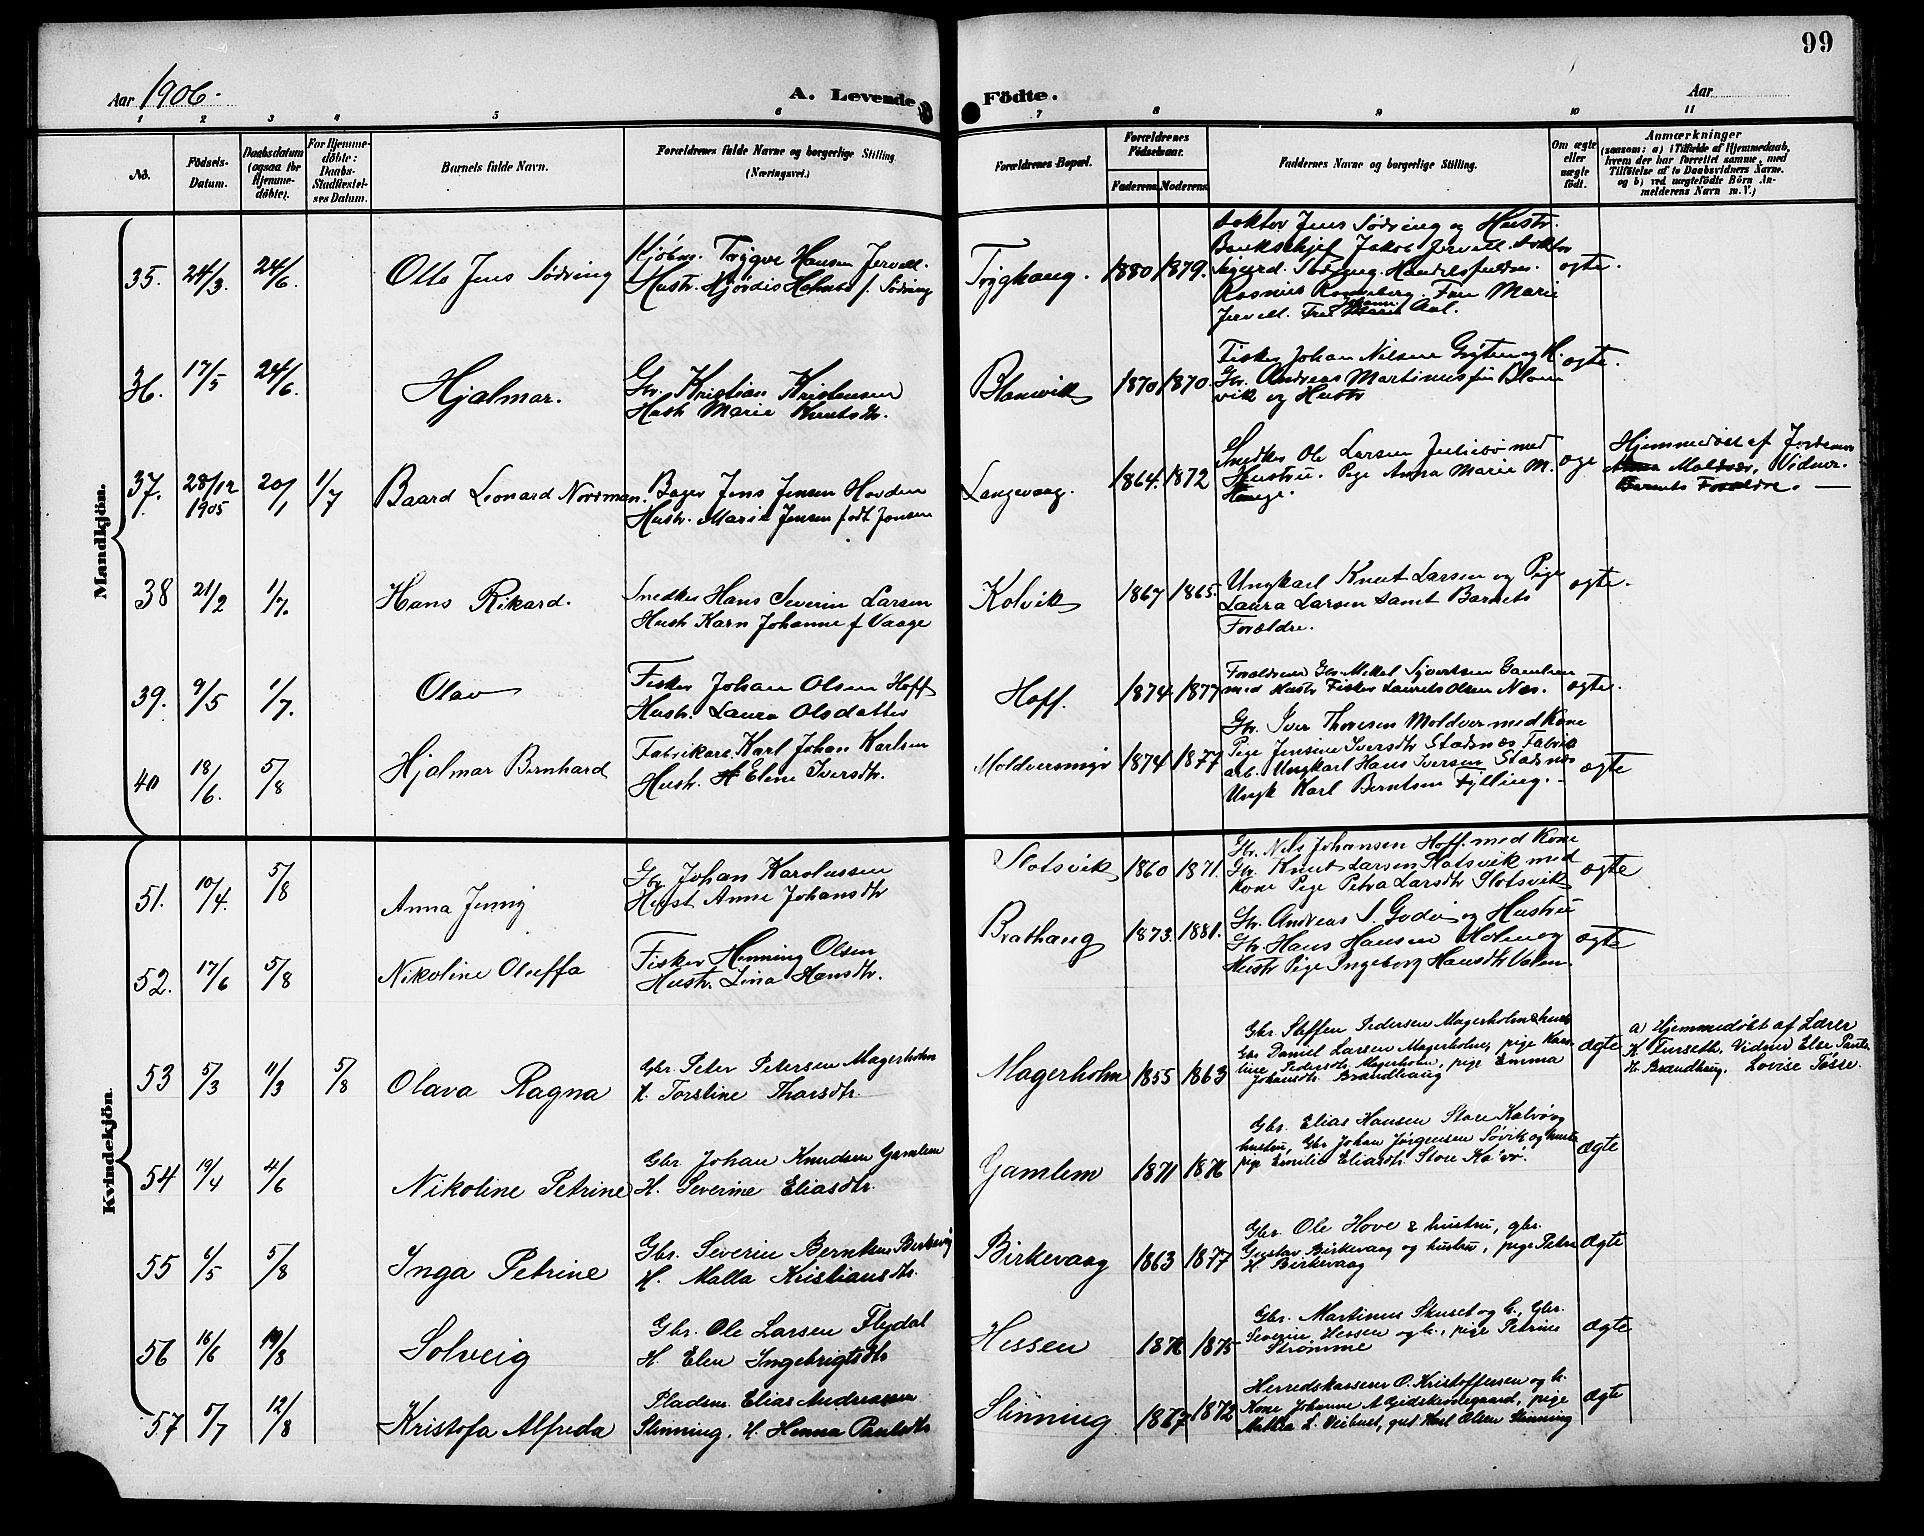 99
Aar 1906.
A. Levende Födte.
Aar
1 2 3 4 5 6 7 8 9 10 11
No.
Födsels-Datum.
Daabsdatum (ogsaa for Hjemme-döbte).
For Hjemme-döbte: Daabs-Stadfæstel-ses Datum.
Barnets fulde Navn.
Forældrenes fulde Navne og borgerlige Stilling. (Næringsvei.)
Forældrenes Bopæl.
Forældrenes Födselsaar.
Faderens. Moderens.
Faddernes Navne og borgerlige Stilling.
Om ægte eller uægte födt.
Anmærkninger
(saasom: a) i Tilfælde af Hjemmedaab, hvem der har forrettet samme, med Tilföielse af to Daabsvidners Navne. og b) ved uægtefödte Börn Anmelderens Navn m. V.)
Mandkjön.
35. 24/3. 24/6. Otto Jens Södring
Kjöbm. Trygve Hansen Jervell.
Hustr. Hjördis Holmboe f. Södring
Tryghaug. 1880 1879.
Doktor Jens Södring og Hustr.
Bankchef Jakob Jervell. Doktor
Sigurd Södring. Handelsfuldm.
Rasmus Rønneberg. Frøk Marie
Jervell. Frøk Aal.
ægte.
36. 17/5 24/6. Hjalmar.
Gbr. Kristian Kristensen
Hustr Marie Knutsdtr.
Blomvik 1870 1870.
Fisker Johan Nilsen Gryten og H.
Gbr. Andreas Martinussen Blom
vik og Hustr
ægte.
37. 28/12 1905 20/1 1/7 Baard Leonard Norman.
Bager Jens Jensen Hovden
Hustr. Marie Jensen født Jonsen
Langevaag. 1864. 1872
Snedker Ole Larsen Juliebö med
Hustru. Pige Anna Marie M.
Hauge.
ægte
Hjemmedöbt af Jordemor
Moldvær, Vidner.
Barnets Forældre.
38 21/2 1/7. Hans Rikard.
Snedker Hans Severin Larsen
Hustr Karn Johanne f Vaage
Kolvik 1867 1865.
Ungkarl Knut Larsen og Pige
Laura Larsen samt Barnets
Forældre.
ægte.
39. 9/5 1/7. Olav
Fisker Johan Olsen Hoff
Hustr. Laura Olsdatter
Hoff. 1874 1877
Forældrene Gbr. Mikal Syvertsen Gamlem
med Hustr Fisker Laurits Olsen Nes.
ægte.
40 18/6. 5/8 Hjalmar Bernhard
Fabrikarb. Karl Johan Karlsen
Hustr. Elene Iversdtr.
Moldversmyr 1874 1877
Gbr. Iver Thoresen Moldver med Kone
Pige Jensine Iversdtr Stadsnes Fabrik
arb. Ungkarl Hans Iversen Stadsnes
Ungk Karl Berntsen Fylling.
ægte
Kvindekjön.
51. 10/4. 5/8 Anna Jenny
Gbr Johan Karolussen
Hust Anne Johansdtr
Slotsvik 1860 1871.
Gbr. Nils Johansen Hoff. med Kone
Gbr. Knut Larsen Slotsvik med
Kone Pige Petra Larsdtr Slotsvik
ægte
52. 17/6 5/8 Nikoline Oluffa
Fisker Henning Olsen
Hustr. Lina Hansdtr.
Brathaug 1873. 1881.
Gbr. Andreas J. Godö og Hustru
Gbr. Hans Hansen Holmen og
Hustr Pige Ingeborg Hansdtr Valen
ægte
53 5/3 11/3 5/8 Olava Ragna
Gbr Peter Petersen Magerholm
H. Torstine Tharsdtr.
Magerholm 1855 1863
Gbr Steffen Pedersen Magerholm & hust
Gbr Daniel Larsen Magerholm, pige Karo-
line Pedersdtr. Magerholm, pige Emma
Johansdtr. Brandhaug
ægte
a) Hjemmedöbt af Lærer
K. Furseth, Vidner
H. Brandhaug, Lovise Tösse.
54 19/4 4/6 Nikoline Petrine
Gbr Johan Knudsen Gamlem
H. Severine Eliasdtr.
Gamlem 1871 1876
Gbr. Elias Hansen Store Kalvø og
hustru, Gbr Johan Jørgensen Søvik og hustr
pige Emilie Eliasdtr. Store Kalvø.
ægte
55 6/5 5/8 Inga Petrine
Gbr. Severin Berntsen Birkevag
H. Malla Kristiansdtr.
Birkevaag 1863 1877
Gbr. Ole Hove & hustru, gbr.
Gustav Birkevaag og hustru, pige Petra
H. Birkevaag
ægte
56 16/6 19/8 Solveig
Gbr. Ole Larsen Flydal
H. Elen Ingebrigtsdtr
Hessen 1876 1875
Gbr. Martinus Skuset og h., Gbr.
Severin Hessen og h., pige Petrine
Strømme
ægte
57 5/7 12/8 Kristofa Alfreda
Pladsm. Elias Andreassen
Slinning, H. Henna Paulsdtr
Slinning 1867 1872
Herredskasserer O. Kristoffersen og h.
Kone Johanne A Gidskeødegaard, pige
Mathea L. Veibust, gut Karl Olsen Slinning
ægte